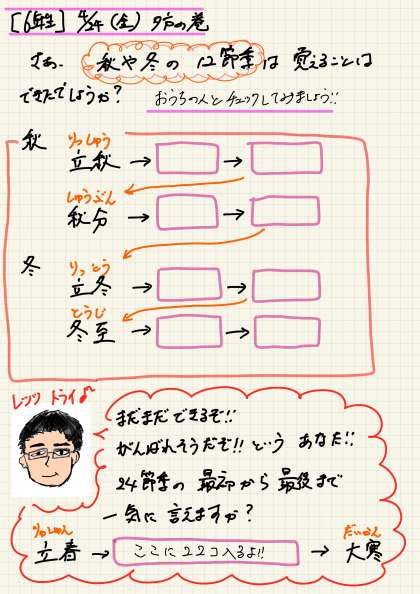 [6年生] 4/24(金) 夕方の巻
さぁ、秋や冬の12節季は覚えることは
できたでしょうか?
おうちの人とチェックしてみましょう!!
秋
りっしゅう
立秋→ →
しゅうぶん
秋分→ →
冬
りっとう
立冬→ →
とうじ
冬至→ →
レッツ トライ♪
まだまだできるぞ!!
がんばれそうだぞ!!という あなた!!
24節季の 最初から 最後まで
一気に 言えますか?
りっしゅん
だいかん
立春→ ここに22コ入るよ!! →大寒